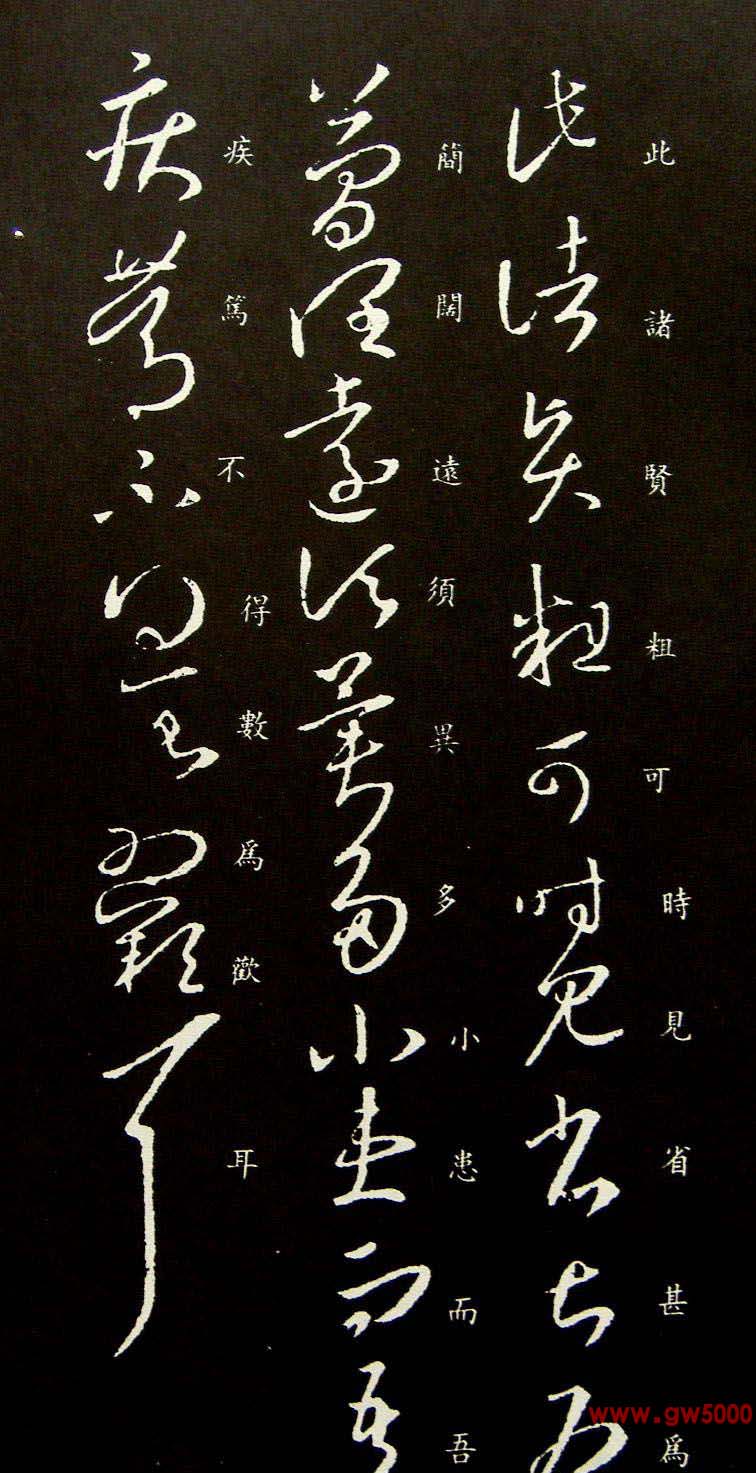 此諸賢粗可時見省甚爲
簡闊遠須異多小患而吾
疾篤不得數爲歡耳
www.gw5000